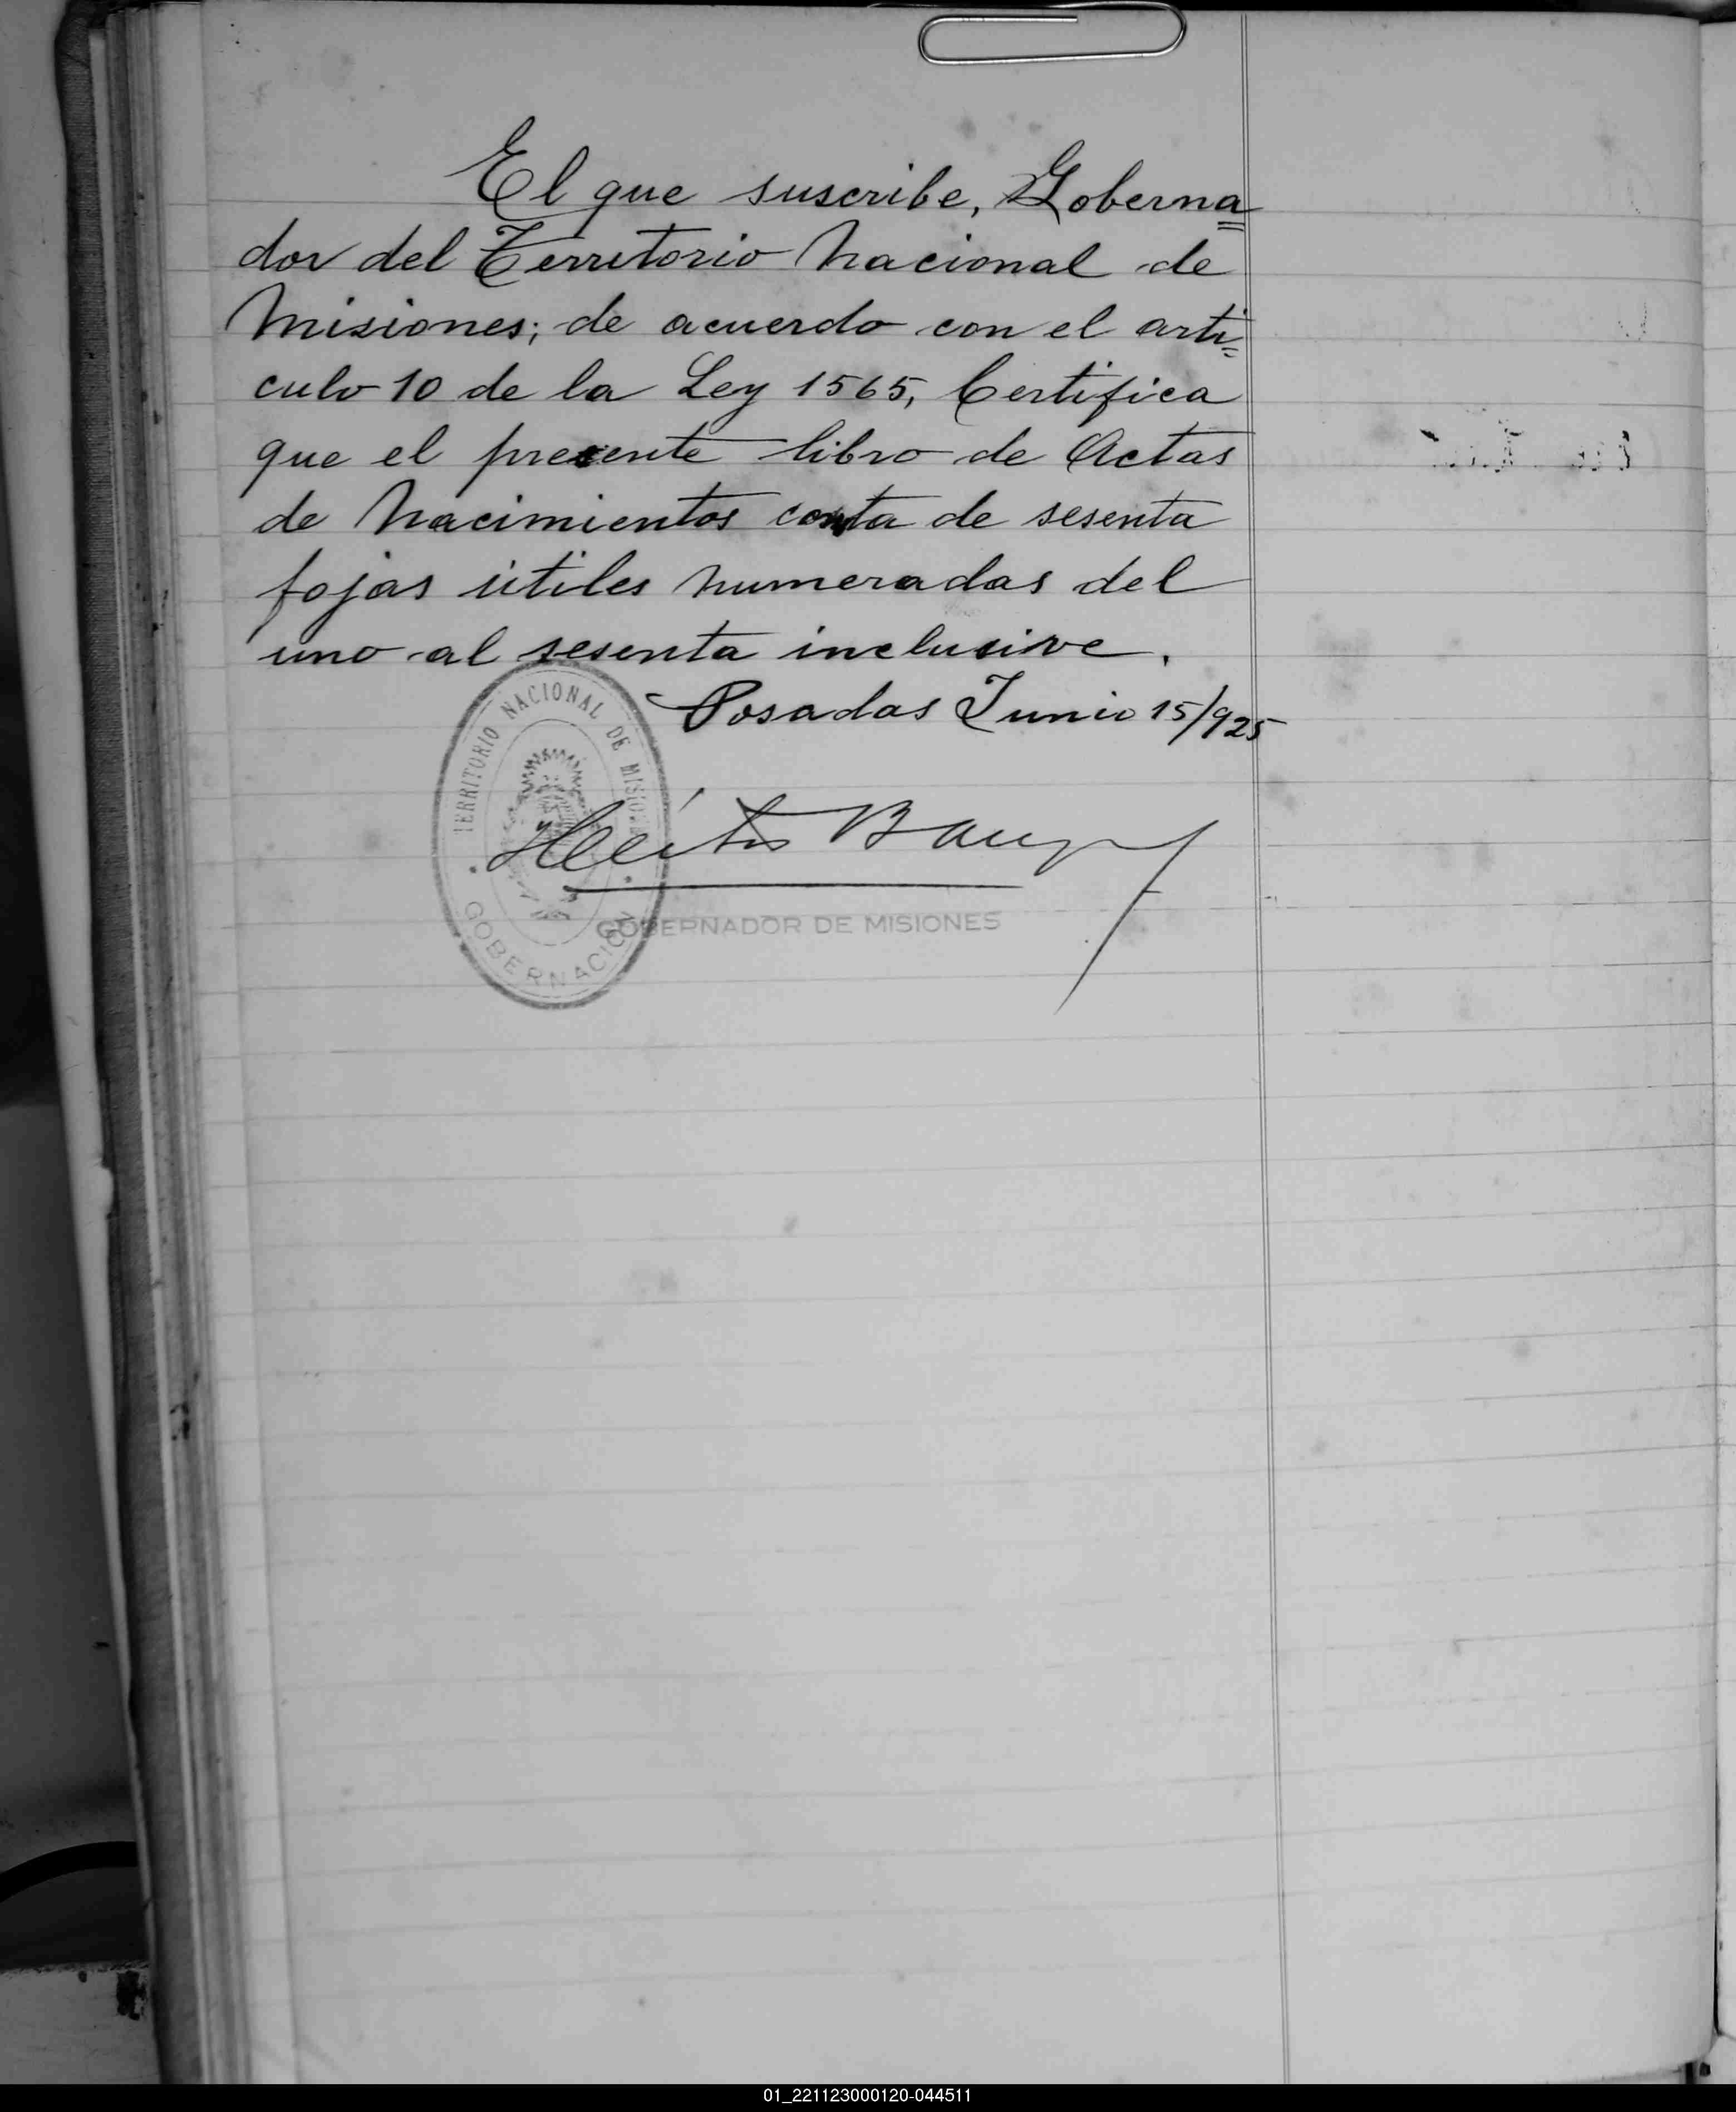 El que suscribe, Goberna=
dor del Territorio Nacional de
Misiones; de acuerdo con el arti=
culo 10 de la Ley 1565, Certifica
que el presente libro de Actas
de Nacimientos costa de sesenta
fojas útiles numeradas del
uno al sesenta inclusive.
Posadas Junio 15/925
TERRITORIO NACIONAL DE MISIONES
GOBERNACION
GOBERNADOR DE MISIONES
01_221123000120-044511